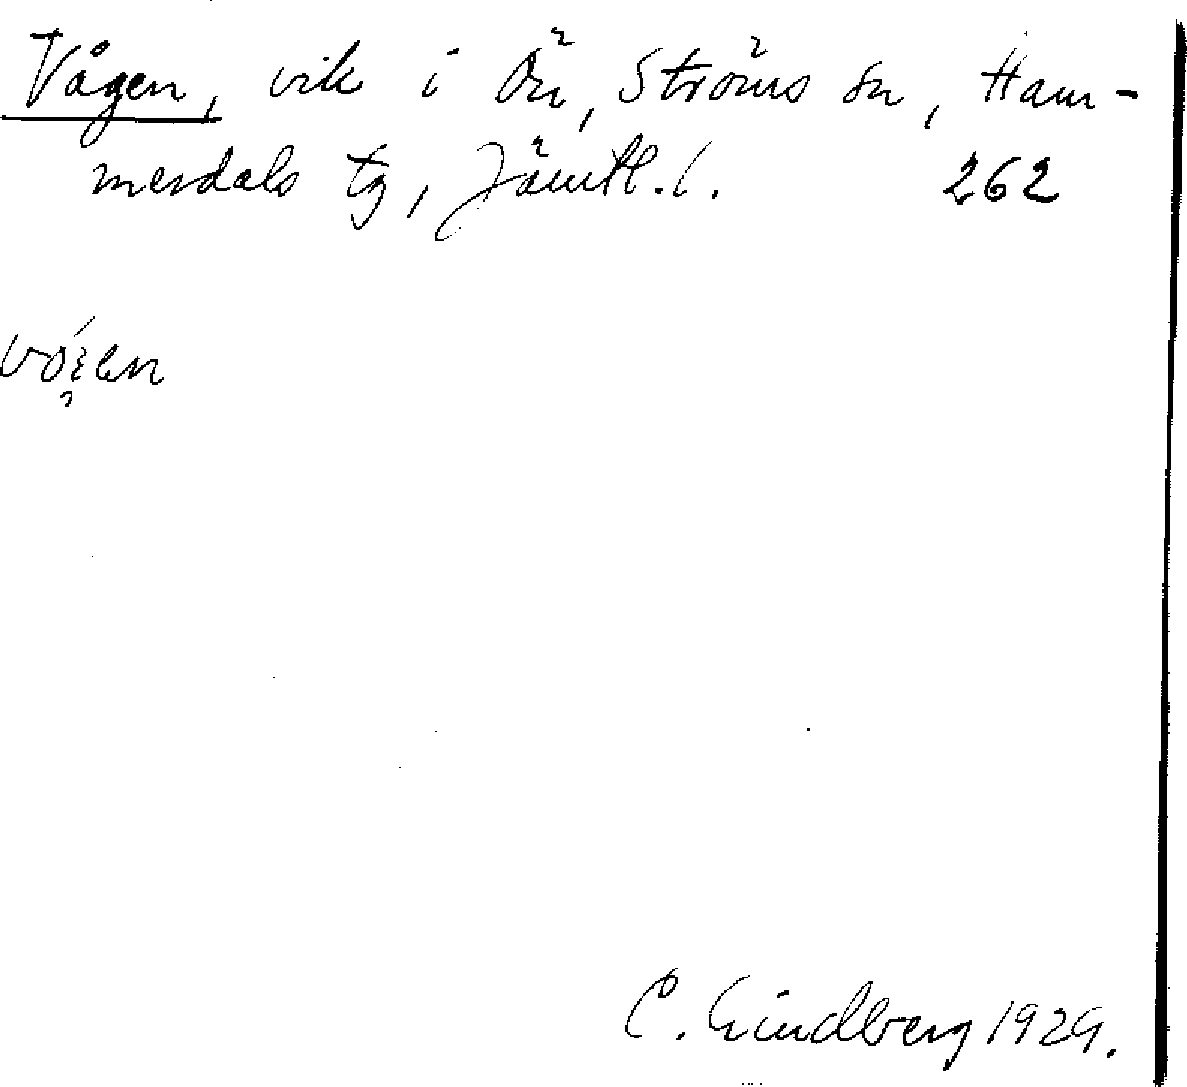 Vågen, vik i Ön, Ströms sn, Ham-
merdals tg, Jämtl. l. 262
C. Lindberg 1929.